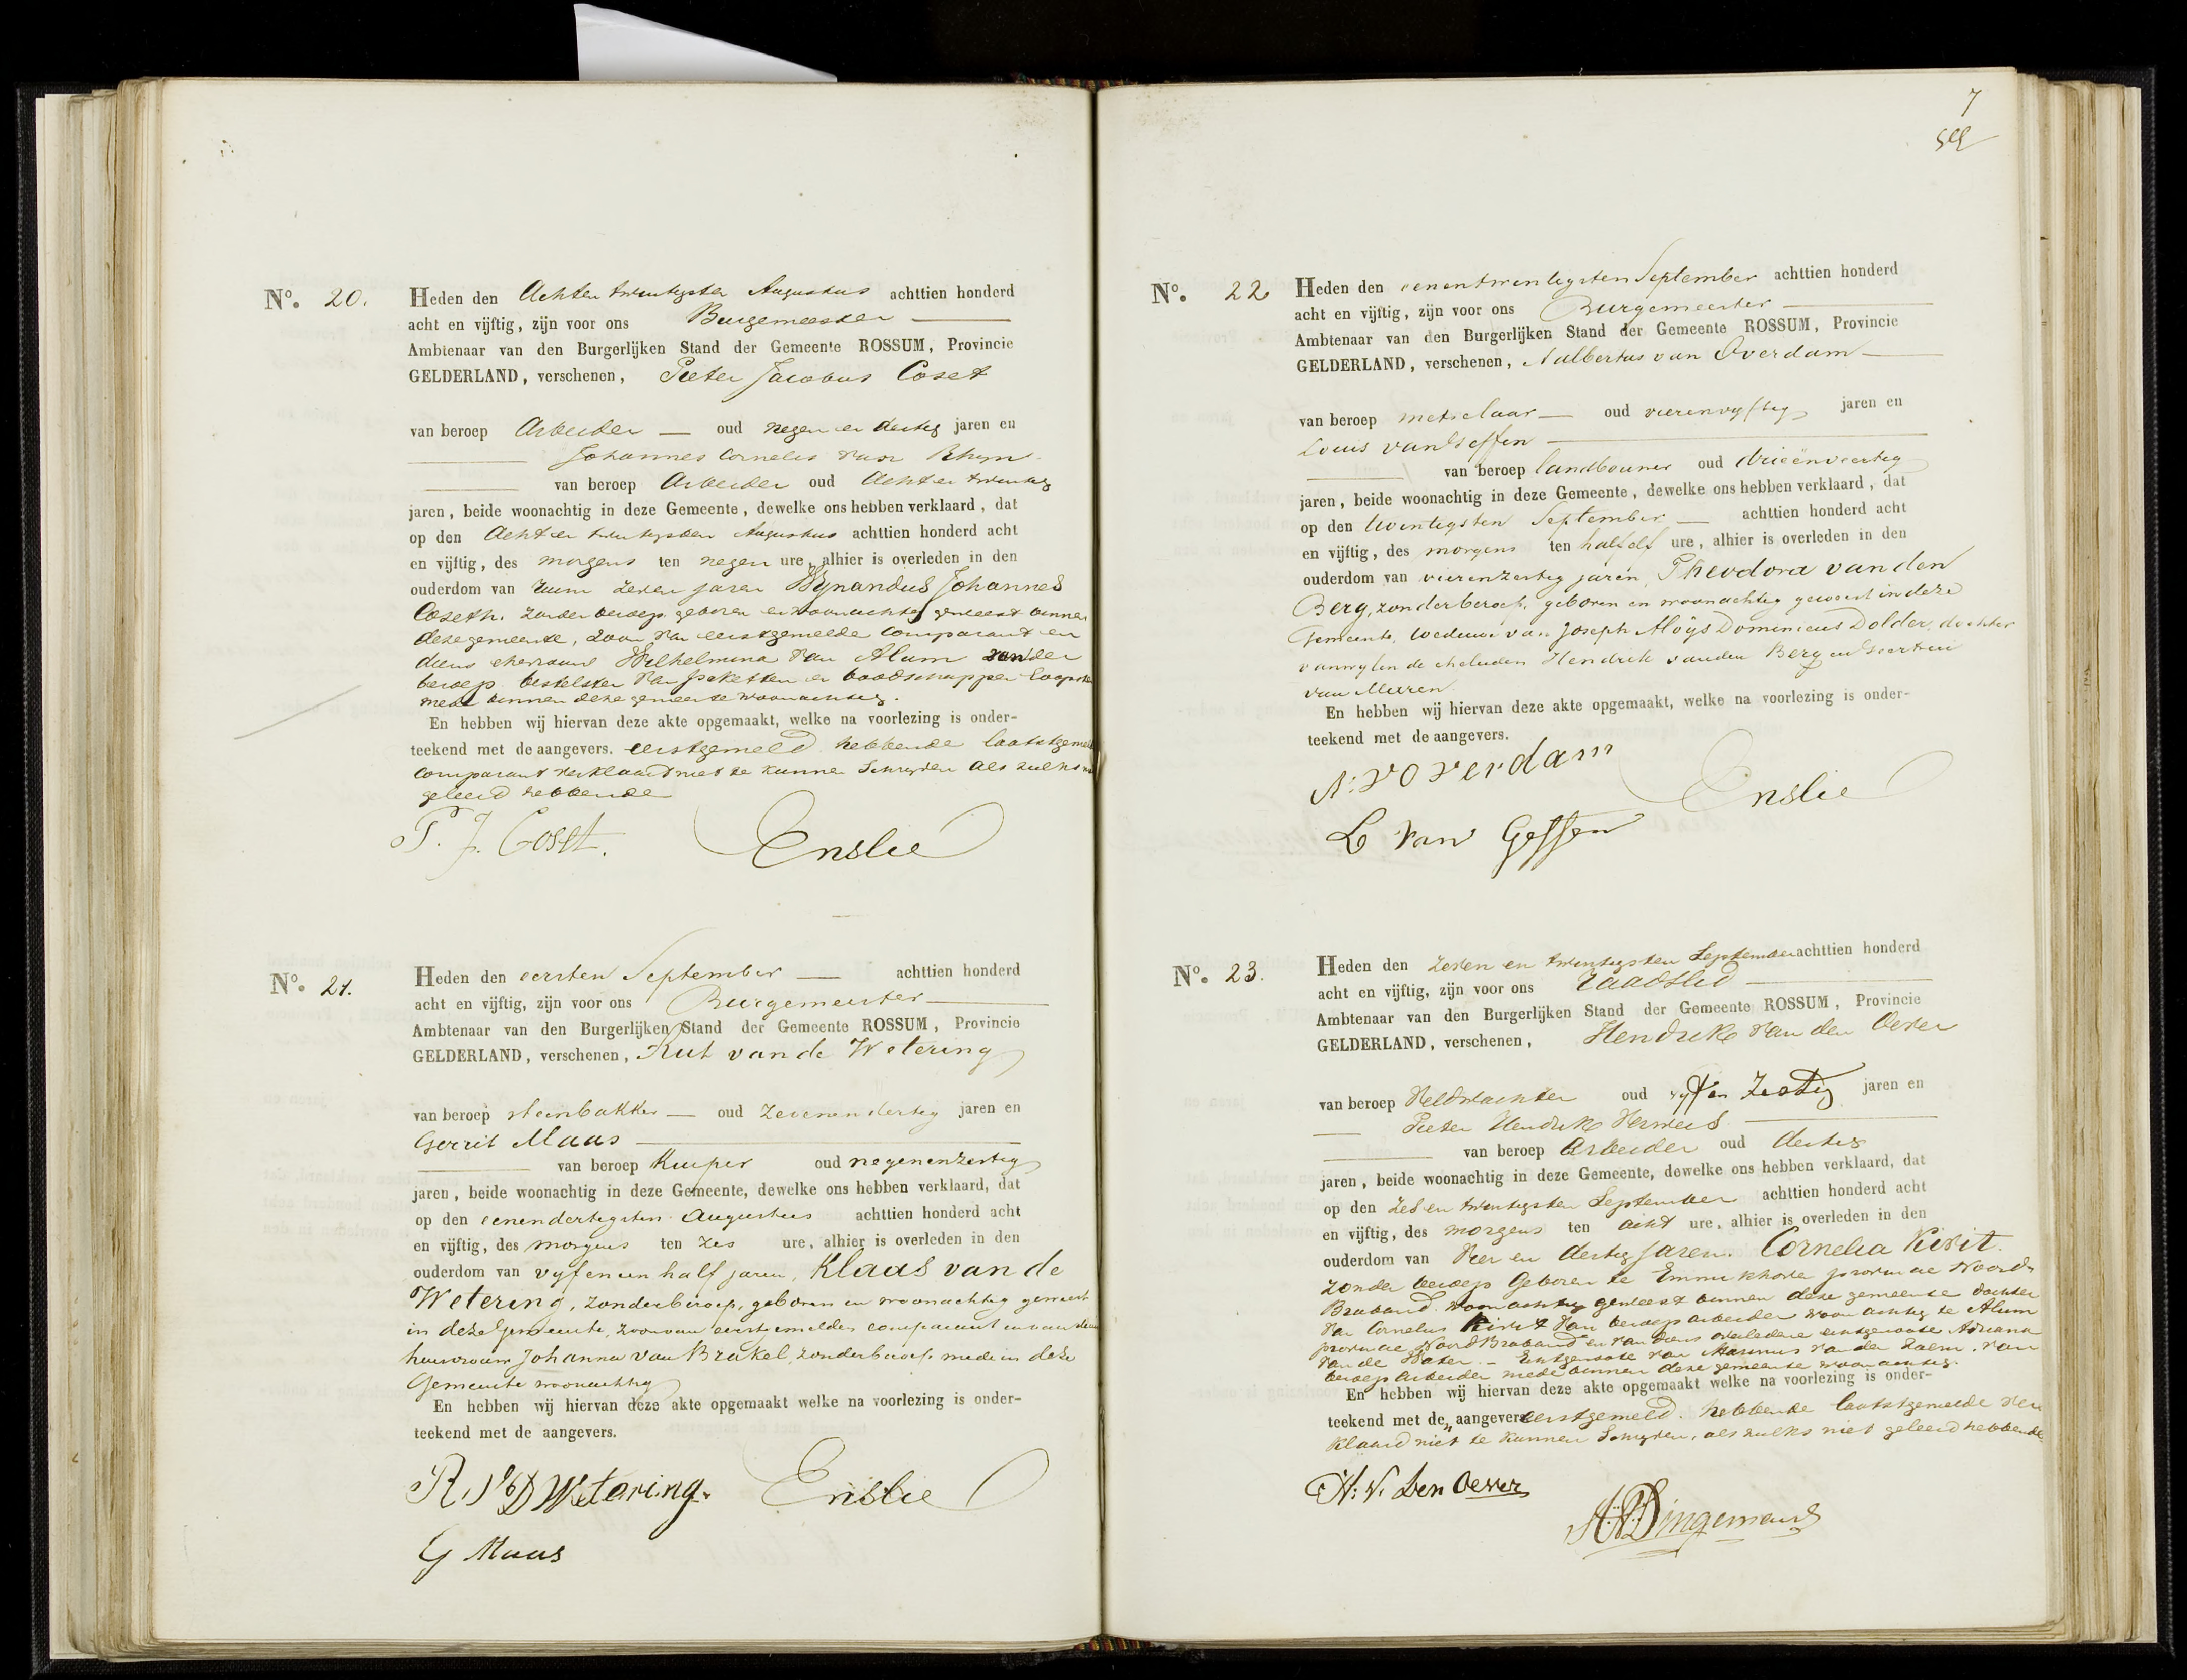 No. 20.
Heden den Acht en twintigsten Augustus achttien honderd
acht en vijftig, zijn voor ons Burgemeester
Ambtenaar van den Burgerlijken Stand der Gemeente ROSSUM, Provincie
GELDERLAND, verschenen, Pieter Jacobus Coset
van beroep Arbeider oud negen en dertig jaren en
Johannes Cornelis van Rhyn
van beroep Arbeider oud Acht en twintig
jaren, beide woonachtig in deze Gemeente, dewelke ons hebben verklaard, dat
op den Acht en twintigsten Augustus achttien honderd acht
en vijftig, des morgens ten negen ure, alhier is overleden in den
ouderdom van ruim zeven jaren Wynandus Johannes
Coseth. zonder beroep geboren en woonachtig geweest binnen
deze gemeente, zoon van eerstgemelde comparant en
diens ehevrouw Wilhelmina van Alum zonder
beroep bestelster van paketten en boodschappen
mede binnen deze gemeente woonachtig.
En hebben wij hiervan deze akte opgemaakt, welke na voorlezing is onder-
teekend met de aangevers. eerstgemeld hebbende laatstgemeld
comparant verklaard niet te kunnen schryven als zulks
geleerd hebbende
P. J. Coset.
Enslie
No. 21.
Heden den eersten September achttien honderd
acht en vijftig, zijn voor ons Burgemeester
Ambtenaar van den Burgerlijken Stand der Gemeente ROSSUM, Provincie
GELDERLAND, verschenen, Rut van de Wetering
van beroep steenbakker oud zevenendertig jaren en
Gerrit Maas
van beroep Kuiper oud negenenzestig
jaren, beide woonachtig in deze Gemeente, dewelke ons hebben verklaard, dat
op den eenendertigsten Augustus achttien honderd acht
en vijftig, des morgens ten zes ure, alhier is overleden in den
ouderdom van vyf en een half jaren, Klaas van de
Wetering, zonder beroep, geboren en woonachtig geweest
in deze Gemeente, zoon van eerstgemelden comparant en van
huisvrouw Johanna van Brakel, zonder beroep mede in deze
Gemeente woonachtig
En hebben wij hiervan deze akte opgemaakt welke na voorlezing is onder-
teekend met de aangevers.
R. VD Wetering.
Enslie
G Maas
7
No. 22
Heden den eenentwintigsten September achttien honderd
acht en vijftig, zijn voor ons Burgemeester
Ambtenaar van den Burgerlijken Stand der Gemeente ROSSUM, Provincie
GELDERLAND, verschenen, Aalbertus van Overdam
van beroep metselaar oud vierenvyftig jaren en
Louis van Geffen
van beroep landbouwer oud drieënveertig
jaren, beide woonachtig in deze Gemeente, dewelke ons hebben verklaard, dat
op den twintigsten September achttien honderd acht
en vijftig, des morgens ten half elf ure, alhier is overleden in den
ouderdom van vierenzestig jaren, Theodora van den
Berg, zonder beroep, geboren en woonachtig geweest in deze
Gemeente, weduwe van Joseph Aloys Dominicus Dolder, dochter
van wylen de eheluiden Hendrik van den Berg en Geertrui
van Meeren
En hebben wij hiervan deze akte opgemaakt, welke na voorlezing is onder-
teekend met de aangevers.
A: v Overdam
Enslie
L van Geffen
No. 23.
Heden den zeven en twintigsten September achttien honderd
acht en vijftig, zijn voor ons Raadslid
Ambtenaar van den Burgerlijken Stand der Gemeente ROSSUM, Provincie
GELDERLAND, verschenen, Hendrik van den Oever
van beroep Veldwachter oud vyf en zestig jaren en
Pieter Hendrik
van beroep Arbeider oud dertig
jaren, beide woonachtig in deze Gemeente, dewelke ons hebben verklaard, dat
op den zes en twintigsten September achttien honderd acht
en vijftig, des morgens ten acht ure, alhier is overleden in den
ouderdom van vier en dertig jaren. Cornelia
zonder beroep Geboren te Emmikhove provincie Noord-
Braband. woonachtig geweest binnen deze gemeente dochter
van Cornelus van beroep arbeider woonachtig te Alum
provincie Noord Braband en van diens overledene echtgenoote Adriana
van de Water. - Echtgenoote van Marinus van der Zalm, van
beroep Arbeider mede binnen deze gemeente woonachtig.
En hebben wij hiervan deze akte opgemaakt welke na voorlezing is onder-
teekend met de aangevers eerstgemeld. hebbende laatstgemelde ver
klaard niet te kunnen schryven, als zulks niet geleerd hebbende
H: V. Den Oever
Dingemans